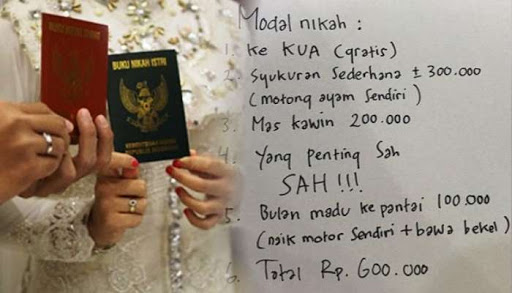 BUKU NIKAH ISTRI
KEMENTERIAN AGAMA
REPUBLIK INDONESIA
Modal nikah :
1. Ke KUA (gratis)
2. Syukuran Sederhana ± 300.000
(motong ayam sendiri)
3. Mas kawin 200.000
4. Yang penting Sah
SAH !!!
5. Bulan madu ke pantai 100.000
(naik motor sendiri + bawa bekel)
6. Total Rp. 600.000